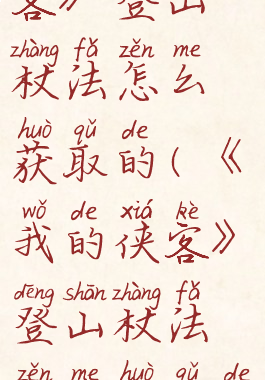 客》登山
zhàng fǎ zěn me
杖法怎么
huò qǔ de
获取的(《
wǒ de xiá kè
我的侠客》
dēng shān zhàng fǎ
登山杖法
zěn me huò qǔ de